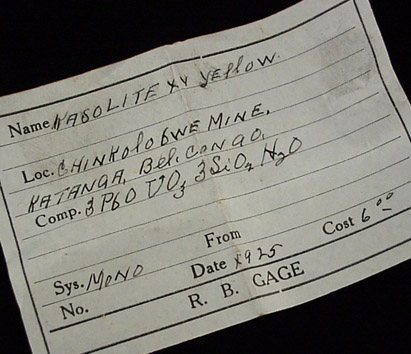 Name KASOLITE XX yellow.
Loc. CHINKOLOBWE MINE,
KATANGA, Bel. CONGO,
Comp. 3 PbO UO3 3SiO2 H2O
From
Sys. MONO Date 1925 Cost 6.00
No. R. B. GAGE